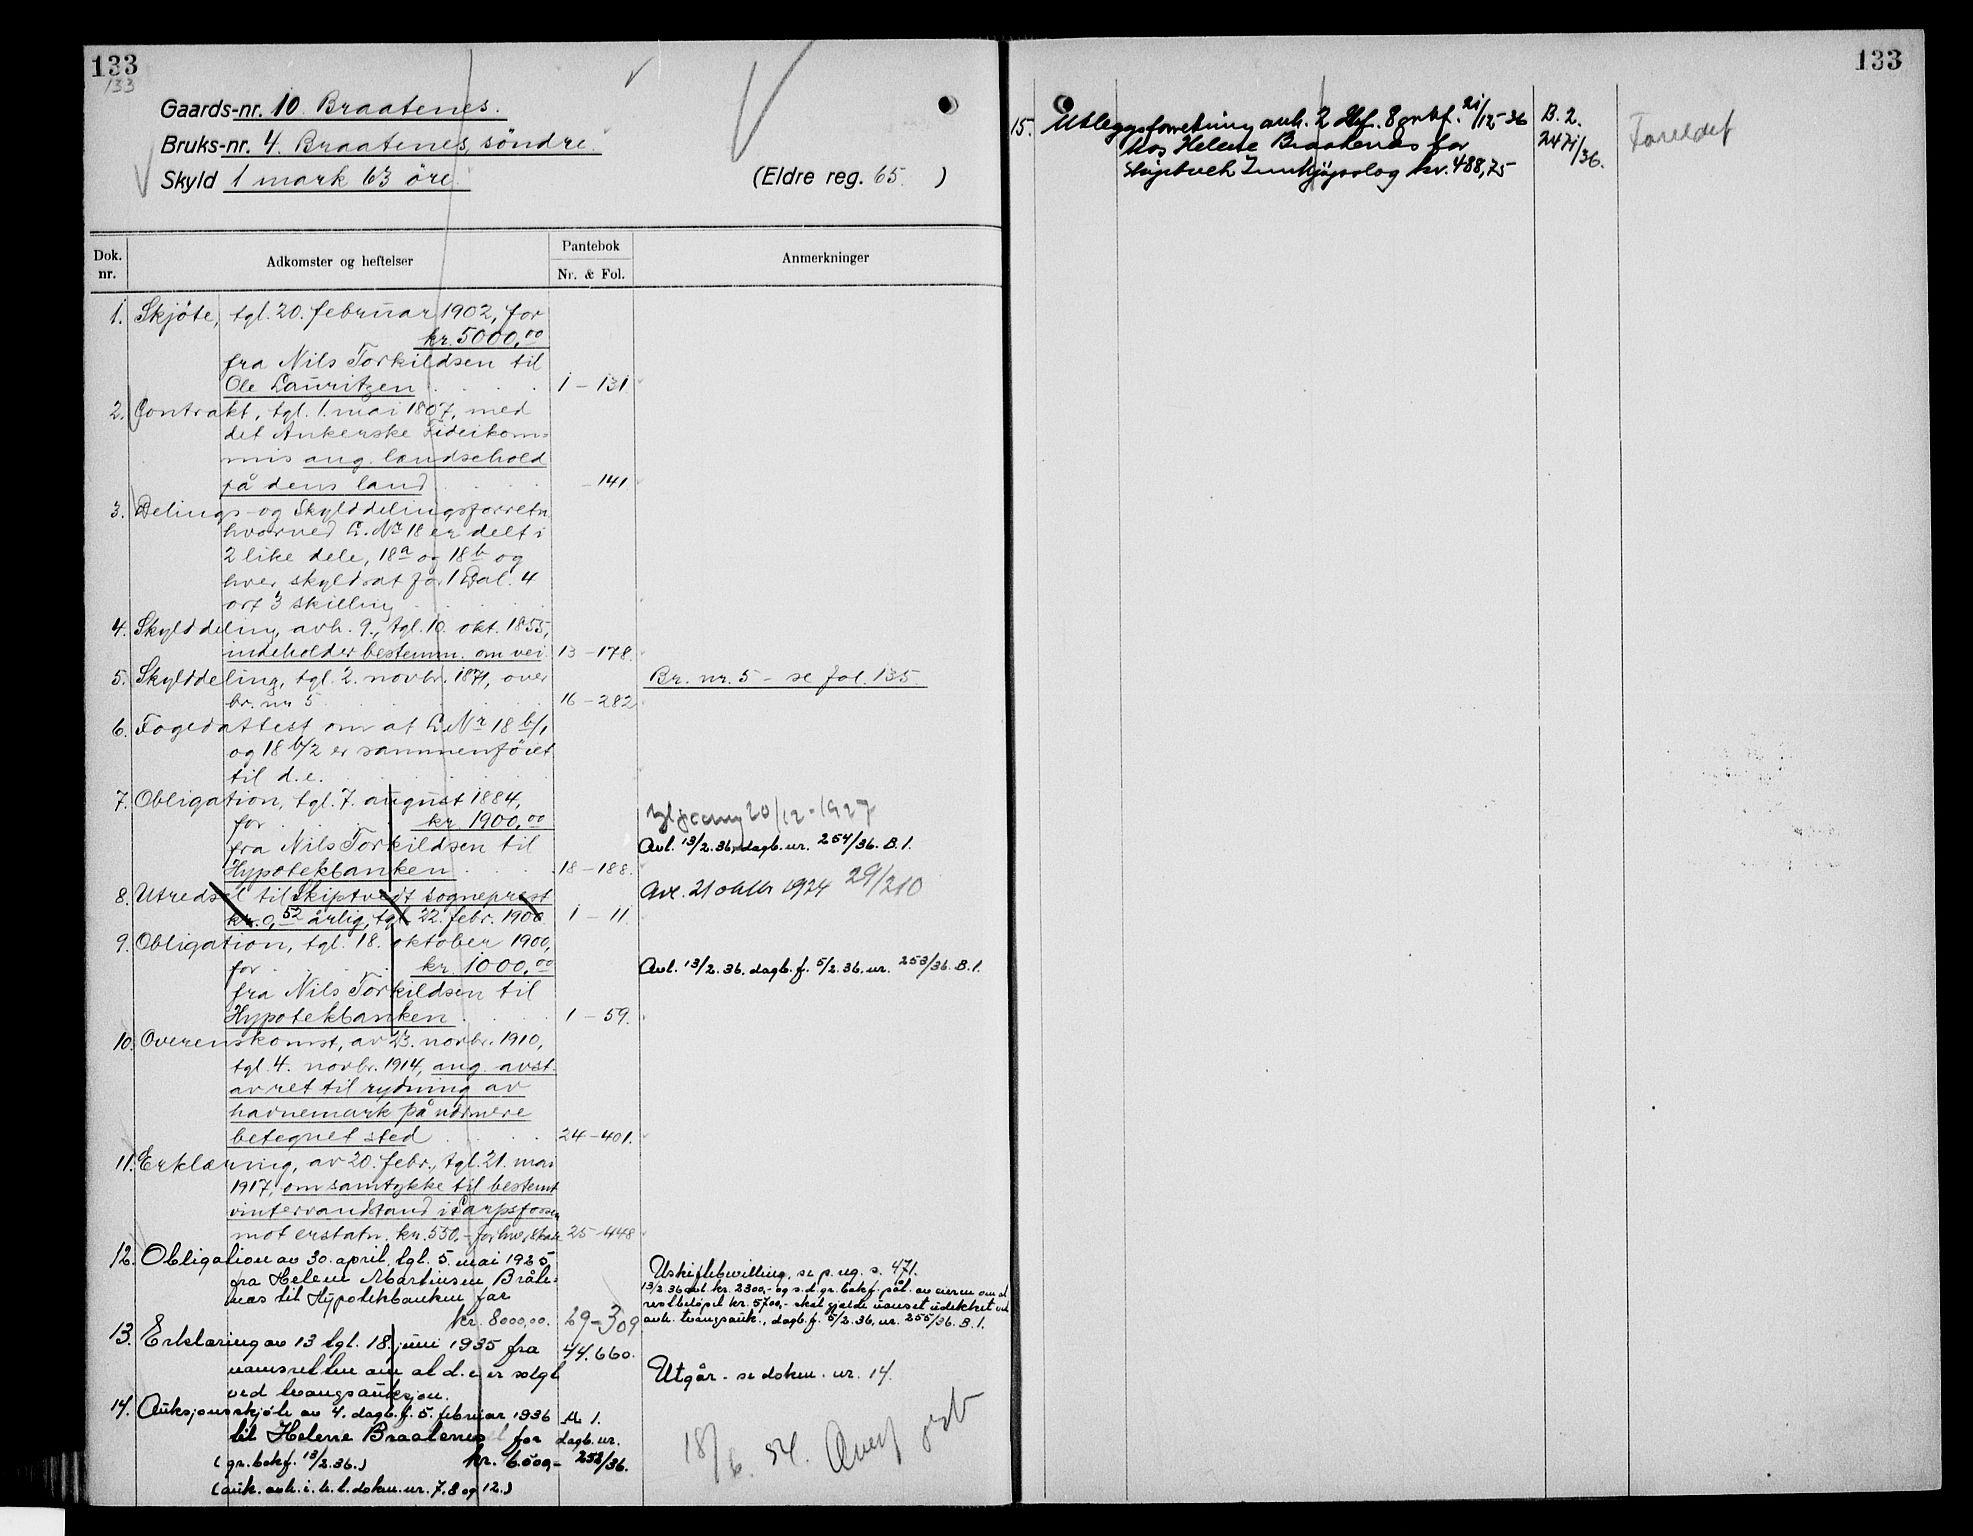 133
133
Gaards-nr. 10 Braatenes.
Bruks-nr. 4. Braatenes, söndre.
Skyld 1 mark 63 öre.
(Eldre reg. 65. )
Dok. nr.
Adkomster og heftelser
Pantebok
Nr. & Fol.
Anmerkninger
1. Skjöte, tgl. 20. februar 1902, for
kr. 5000,00
fra Nils Torkildsen til
Ole Lauritzen 1 - 131
2. Contrakt, tgl. 1. mai 1807, med
det Ankerske Fideikom-
mis ang. landsehold
på dens land - 141
3. Delings- og Skylddelingsforretn.
hvorved L. Nr 18 er delt i
2 like dele, 18a og 18b og
hver skyldsat for 1 Dal. 4
ort 3 skilling
4. Skylddeling, avh. 9., tgl. 10. okt. 1855,
indeholder bestemm. om vei 13 - 178.
5. Skylddeling, tgl. 2. novbr. 1871, over
br. nr 5 16 - 282
Br. nr. 5 - se fol. 135
6. Fogedattest om at L. Nr 18 b/1
og 18 b/2 er sammenföiet
til d.e.
7. Obligation, tgl. 7. august 1884,
for kr. 1900,00
fra Nils Torkildsen til
Hypotekbanken 18 - 188.
20/12 - 1927
Avl. 13/2. 36, dagb. nr. 254/36. B. 1.
8. Utredsel til Skiptvedt sogneprest
kr. 0,52 årlig, tgl. 22. febr. 1900 1 - 11
Avl. 21 oktbr 1924 29/210
9. Obligation, tgl. 18. oktober 1900,
for kr. 1000,00
fra Nils Torkildsen til
Hypotekbanken 1 - 59.
Avl. 13/2. 36. dagb. f. 5/2. 36. nr. 253/36. B. 1.
10. Overenskomst, av 23. novbr. 1910,
tgl. 4. novbr. 1914, ang. avst.
av ret til rydning av
havnemark på nærmere
betegnet sted 24 - 401.
11. Erklæring, av 20. febr., tgl. 21. mai
1917, om samtykke til bestemt
vintervandstand i Sarpsfossen
mot erstatn. kr. 550,- for hver 25 - 448
12. Obligation av 30. april, tgl. 5. mai 1925
fra Helene Martinsen Bråte-
næs til Hypotekbanken for
kr. 8000,00. 29 - 309
Uskiftebevilling, se p. reg. s. 471.
13/2. 36 avl. kr. 2300,- og s.d. gr. bokf. pål. av eieren om at
restbeløpet kr. 5700,- skal gjelde uanset udekket ved
avh. tvangsauk., dagb. f. 5/2. 36. nr. 255/36. B. 1.
13. Erklæring av 13 tgl. 18. juni 1935 fra
namsretten om at d.e. er solgt
ved tvangsauksjon.
44. 660.
Utgår - se dokm. nr. 14.
14. Auksjonsskjöte av 4. dagb. f. 5. februar 1936
til Helene Braatenes for
(gr. bokf. 13/2. 36.) kr. 6500,-
(auk. avh. i. h. t. dokm. nr. 7. 8 og 12.)
M 1.
dagb. nr.
252/36.
18/6. 54. Overf
133
15. Utleggsforretning avh. 2 21/12 - 36
hos Helene Braatenes for
Skiptvet Innkjøpslag kr. 488,75
B. 2.
2471/36.
Foreldet